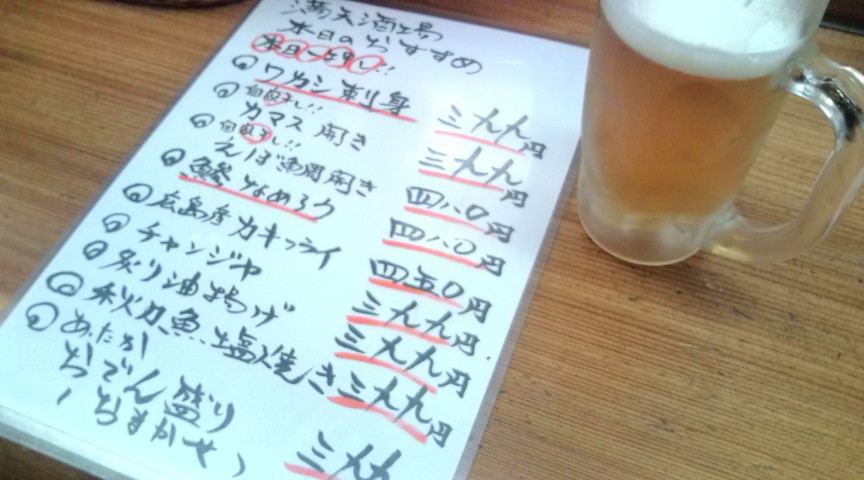 満天酒場
本日のおすすめ
本日一押し!!
◎ワカシ刺身 三九九円
自家干し!!
◎カマス開き 三九九円
自家干し!!
◎えぼ鯛開き 四八〇円
◎鯵なめろう 四八〇円
◎広島産カキフライ 四五〇円
◎チャンジャ 三九九円
◎炙り油揚げ 三九九円
◎秋刀魚塩焼き 三九九円
◎あったか
おでん盛り
(おまかせ) 三九九